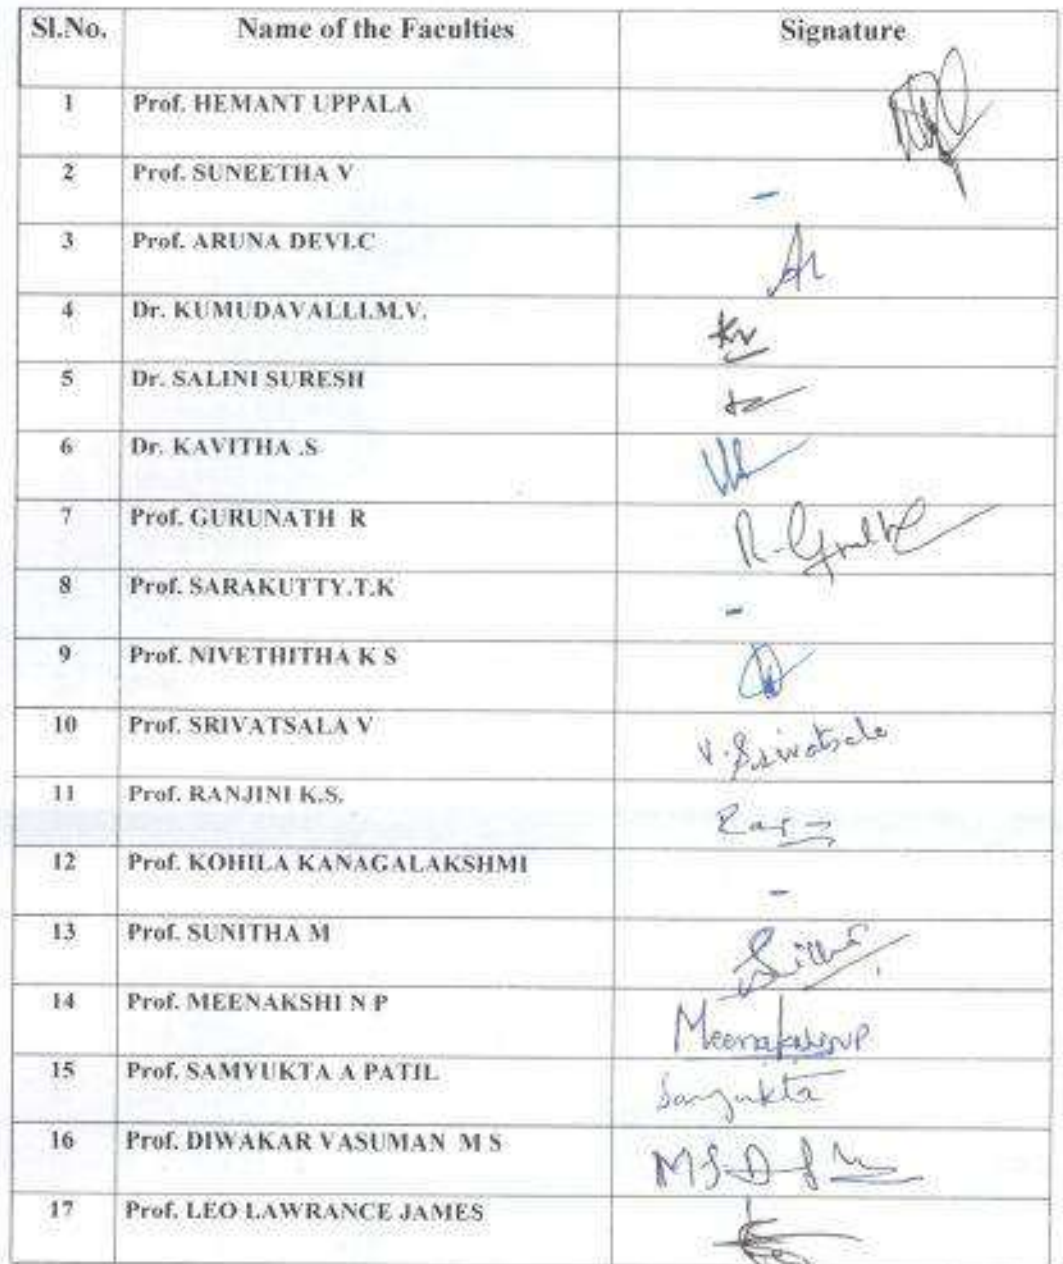 Sl.No. Name of the Faculties Signature
1 Prof. HEMANT UPPALA
2 Prof. SUNEETHA V -
3 Prof. ARUNA DEVI.C
4 Dr. KUMUDAVALLI.M.V. Kv
5 Dr. SALINI SURESH
6 Dr. KAVITHA .S
7 Prof. GURUNATH R
8 Prof. SARAKUTTY.T.K -
9 Prof. NIVETHITHA K S
10 Prof. SRIVATSALA V V. Srivatsala
11 Prof. RANJINI K.S.
12 Prof. KOHILA KANAGALAKSHMI -
13 Prof. SUNITHA M
14 Prof. MEENAKSHI N P Meenakshi NP
15 Prof. SAMYUKTA A PATIL Samyukta
16 Prof. DIWAKAR VASUMAN M S
17 Prof. LEO LAWRANCE JAMES